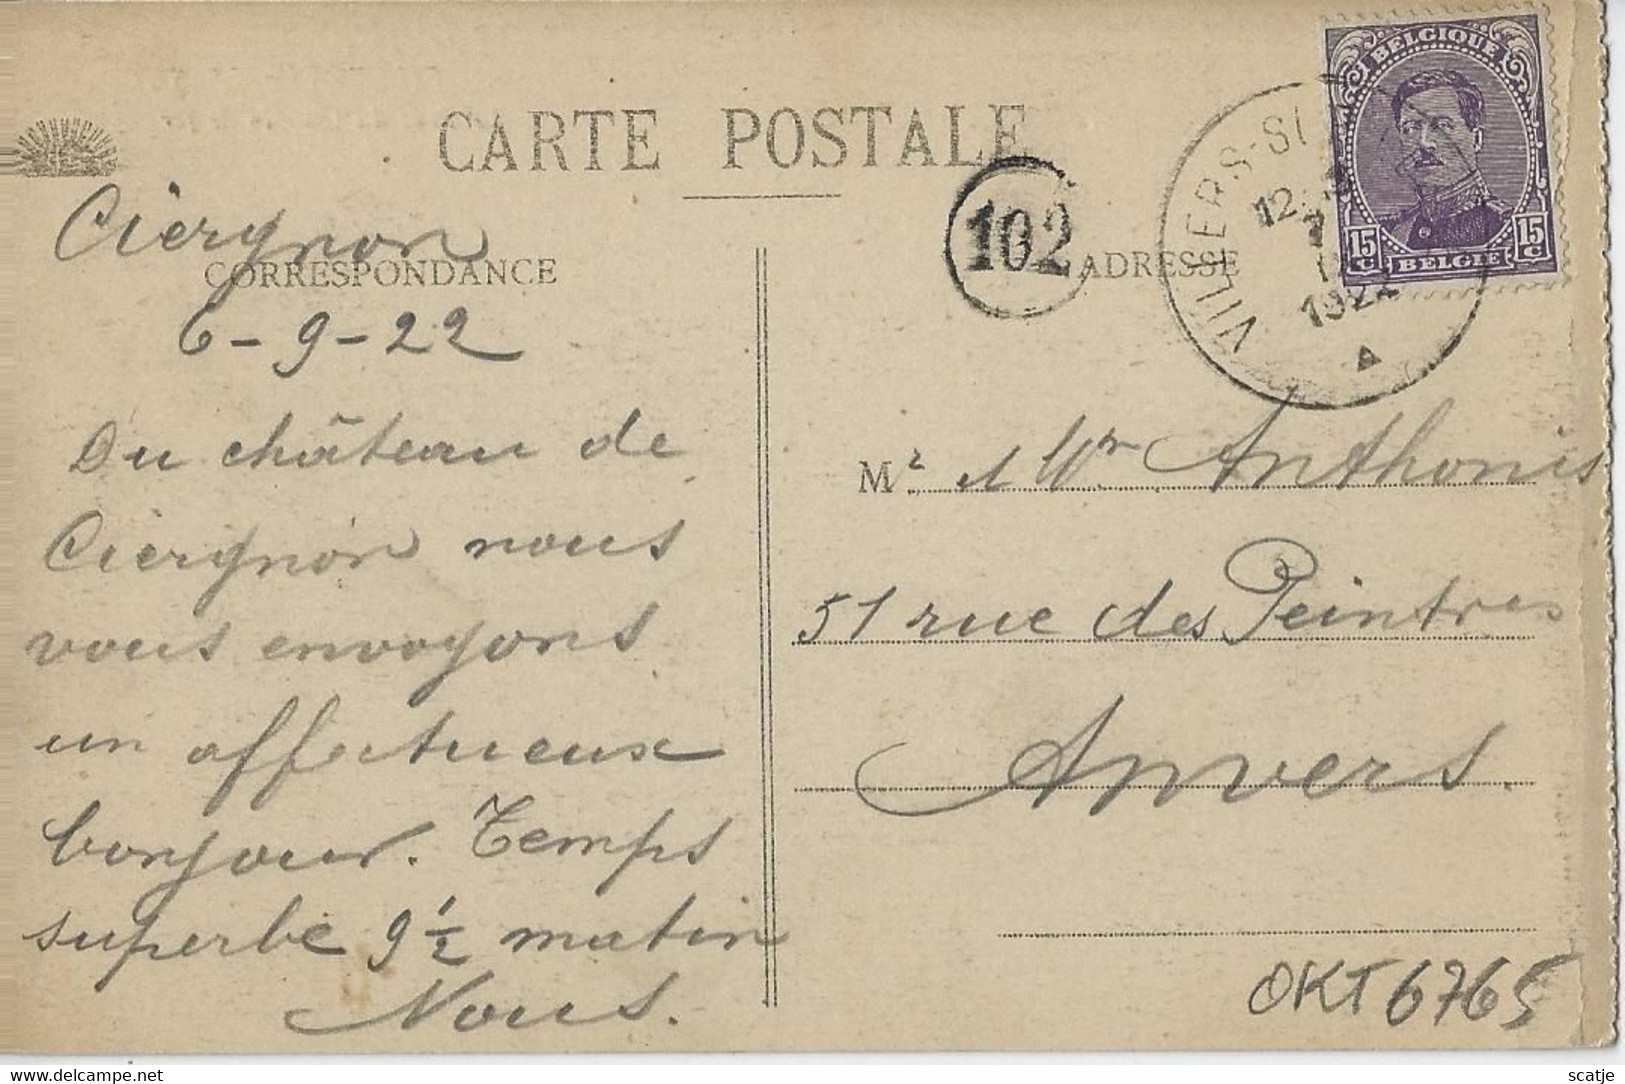 CARTE POSTALE
BELGIQUE
15 C
15 C
BELGIË
VILLERS-SU
12
1922
102
Ciergnon
CORRESPONDANCE
6-9-22
Du château de
Ciergnon nous
vous envoyons
un affectueux
bonjour. Temps
superbe 9 1/2 matin
Nous.
ADRESSE
Mr et Mme Anthonis
51 rue des Peintres
Anvers.
OKT 6765
www.delcampe.net
scatje